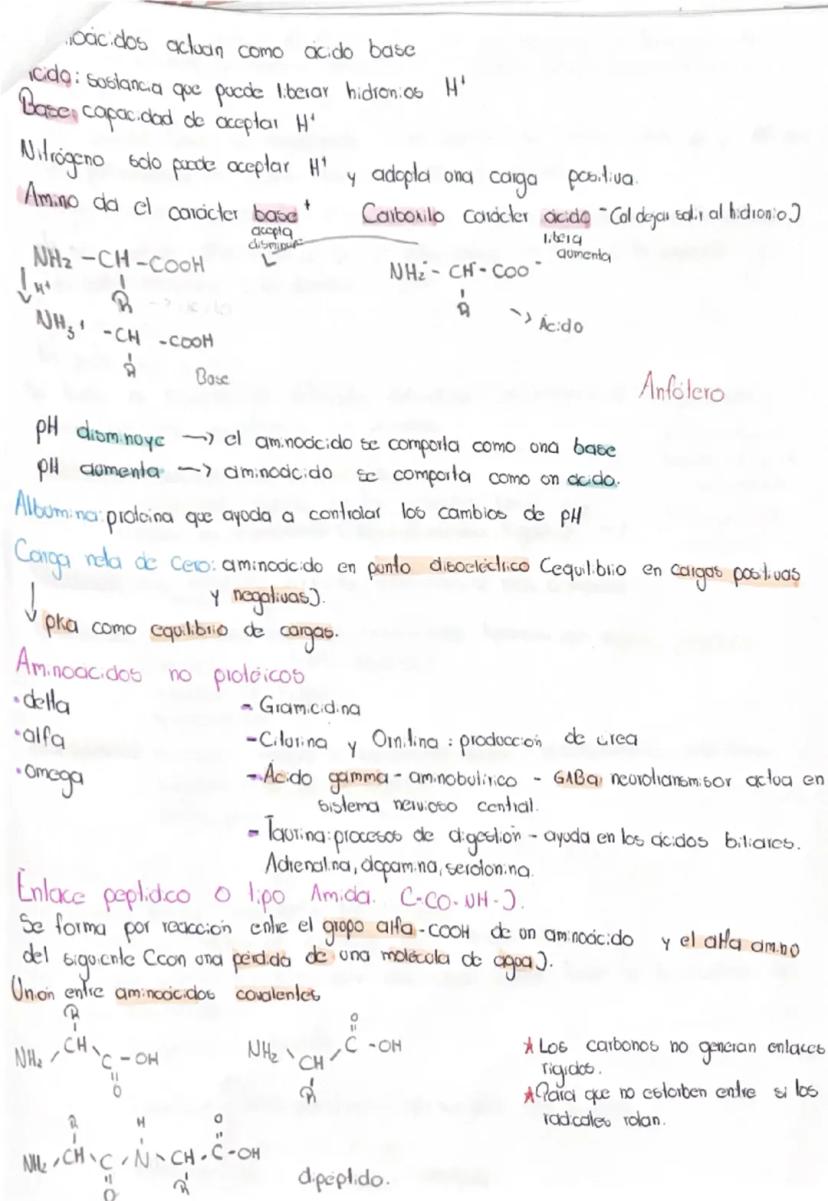 oácidos actuan como ácido base
ácido: sustancia que puede liberar hidronios H⁺
Base: capacidad de aceptar H⁺
Nitrógeno solo puede aceptar H⁺ y adopta una carga positiva.
Amino da el carácter base⁺ Carboxilo carácter ácido⁻ (al dejar salir al hidronio)
acepta disminuye libera aumenta
NH₂ - CH - COOH NH₂ - CH - COO⁻
↓ H⁺ R R → Ácido
NH₃⁺ - CH - COOH
R Base
Anfótero
pH disminuye → el aminoácido se comporta como una base
pH aumenta → aminoácido se comporta como un ácido.
Albumina: proteína que ayuda a controlar los cambios de pH
Carga neta de cero: aminoácido en punto disoeléctrico (equilibrio en cargas positivas
y negativas).
↓ pka como equilibrio de cargas.
Aminoácidos no protéicos
• delta - Gramicidina
• alfa - Citurina y Ornitina: producción de urea
• omega - Ácido gamma - aminobutírico - GABA neurotransmisor actua en
sistema nervioso central.
- Taurina: procesos de digestión - ayuda en los ácidos biliares.
Adrenalina, dopamina, serotonina.
Enlace peptídico o tipo Amida. (-CO-NH-).
Se forma por reacción entre el grupo alfa-COOH de un aminoácido y el alfa amino
del siguiente (con una pérdida de una molécula de agua).
Unión entre aminoácidos covalentes
R O
NH₂ CH C - OH NH₂ CH C - OH
O R
★ Los carbonos no generan enlaces
rígidos.
★ Para que no estorben entre si los
radicales rotan.
R H O
NH₂ CH C N CH C - OH
O R dipéptido.